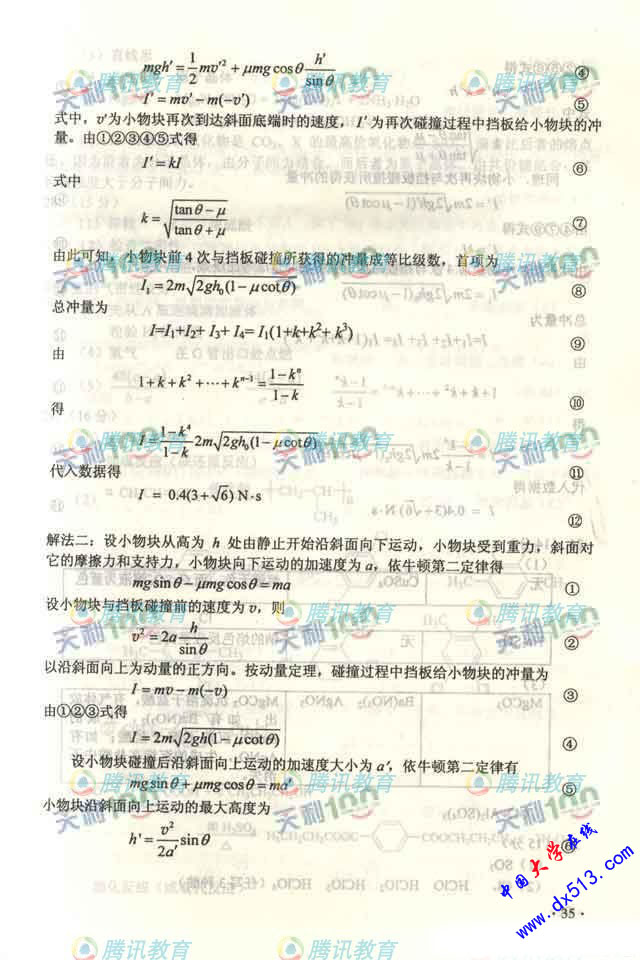 mgh′ = 1/2 mv′² + μmg cosθ h′/sinθ ④
I′ = mv′ − m(−v′) ⑤
式中，v′为小物块再次到达斜面底端时的速度，I′为再次碰撞过程中挡板给小物块的冲
量。由①②③④⑤式得
I′ = kI ⑥
式中
k = √((tanθ − μ)/(tanθ + μ)) ⑦
由此可知，小物块前 4 次与挡板碰撞所获得的冲量成等比级数，首项为
I₁ = 2m√(2gh₀(1 − μcotθ)) ⑧
总冲量为
I=I₁+I₂+ I₃+ I₄= I₁(1+k+k²+ k³) ⑨
由
1+k+k²+⋯+kⁿ⁻¹ = (1−kⁿ)/(1−k) ⑩
得
I = (1−k⁴)/(1−k) 2m√(2gh₀(1−μcotθ)) ⑪
代入数据得
I = 0.4(3+√6) N·s ⑫
解法二：设小物块从高为 h 处由静止开始沿斜面向下运动，小物块受到重力，斜面对
它的摩擦力和支持力，小物块向下运动的加速度为 a，依牛顿第二定律得
mg sinθ − μmg cosθ = ma ①
设小物块与挡板碰撞前的速度为 v，则
v² = 2a h/sinθ ②
以沿斜面向上为动量的正方向。按动量定理，碰撞过程中挡板给小物块的冲量为
I = mv − m(−v) ③
由①②③式得
I = 2m√(2gh(1−μcotθ)) ④
设小物块碰撞后沿斜面向上运动的加速度大小为 a′，依牛顿第二定律有
mg sinθ + μmg cosθ = ma′ ⑤
小物块沿斜面向上运动的最大高度为
h′ = v²/2a′ sinθ ⑥
·35·
中国大学在线
www.dx513.com
天利100
腾讯教育